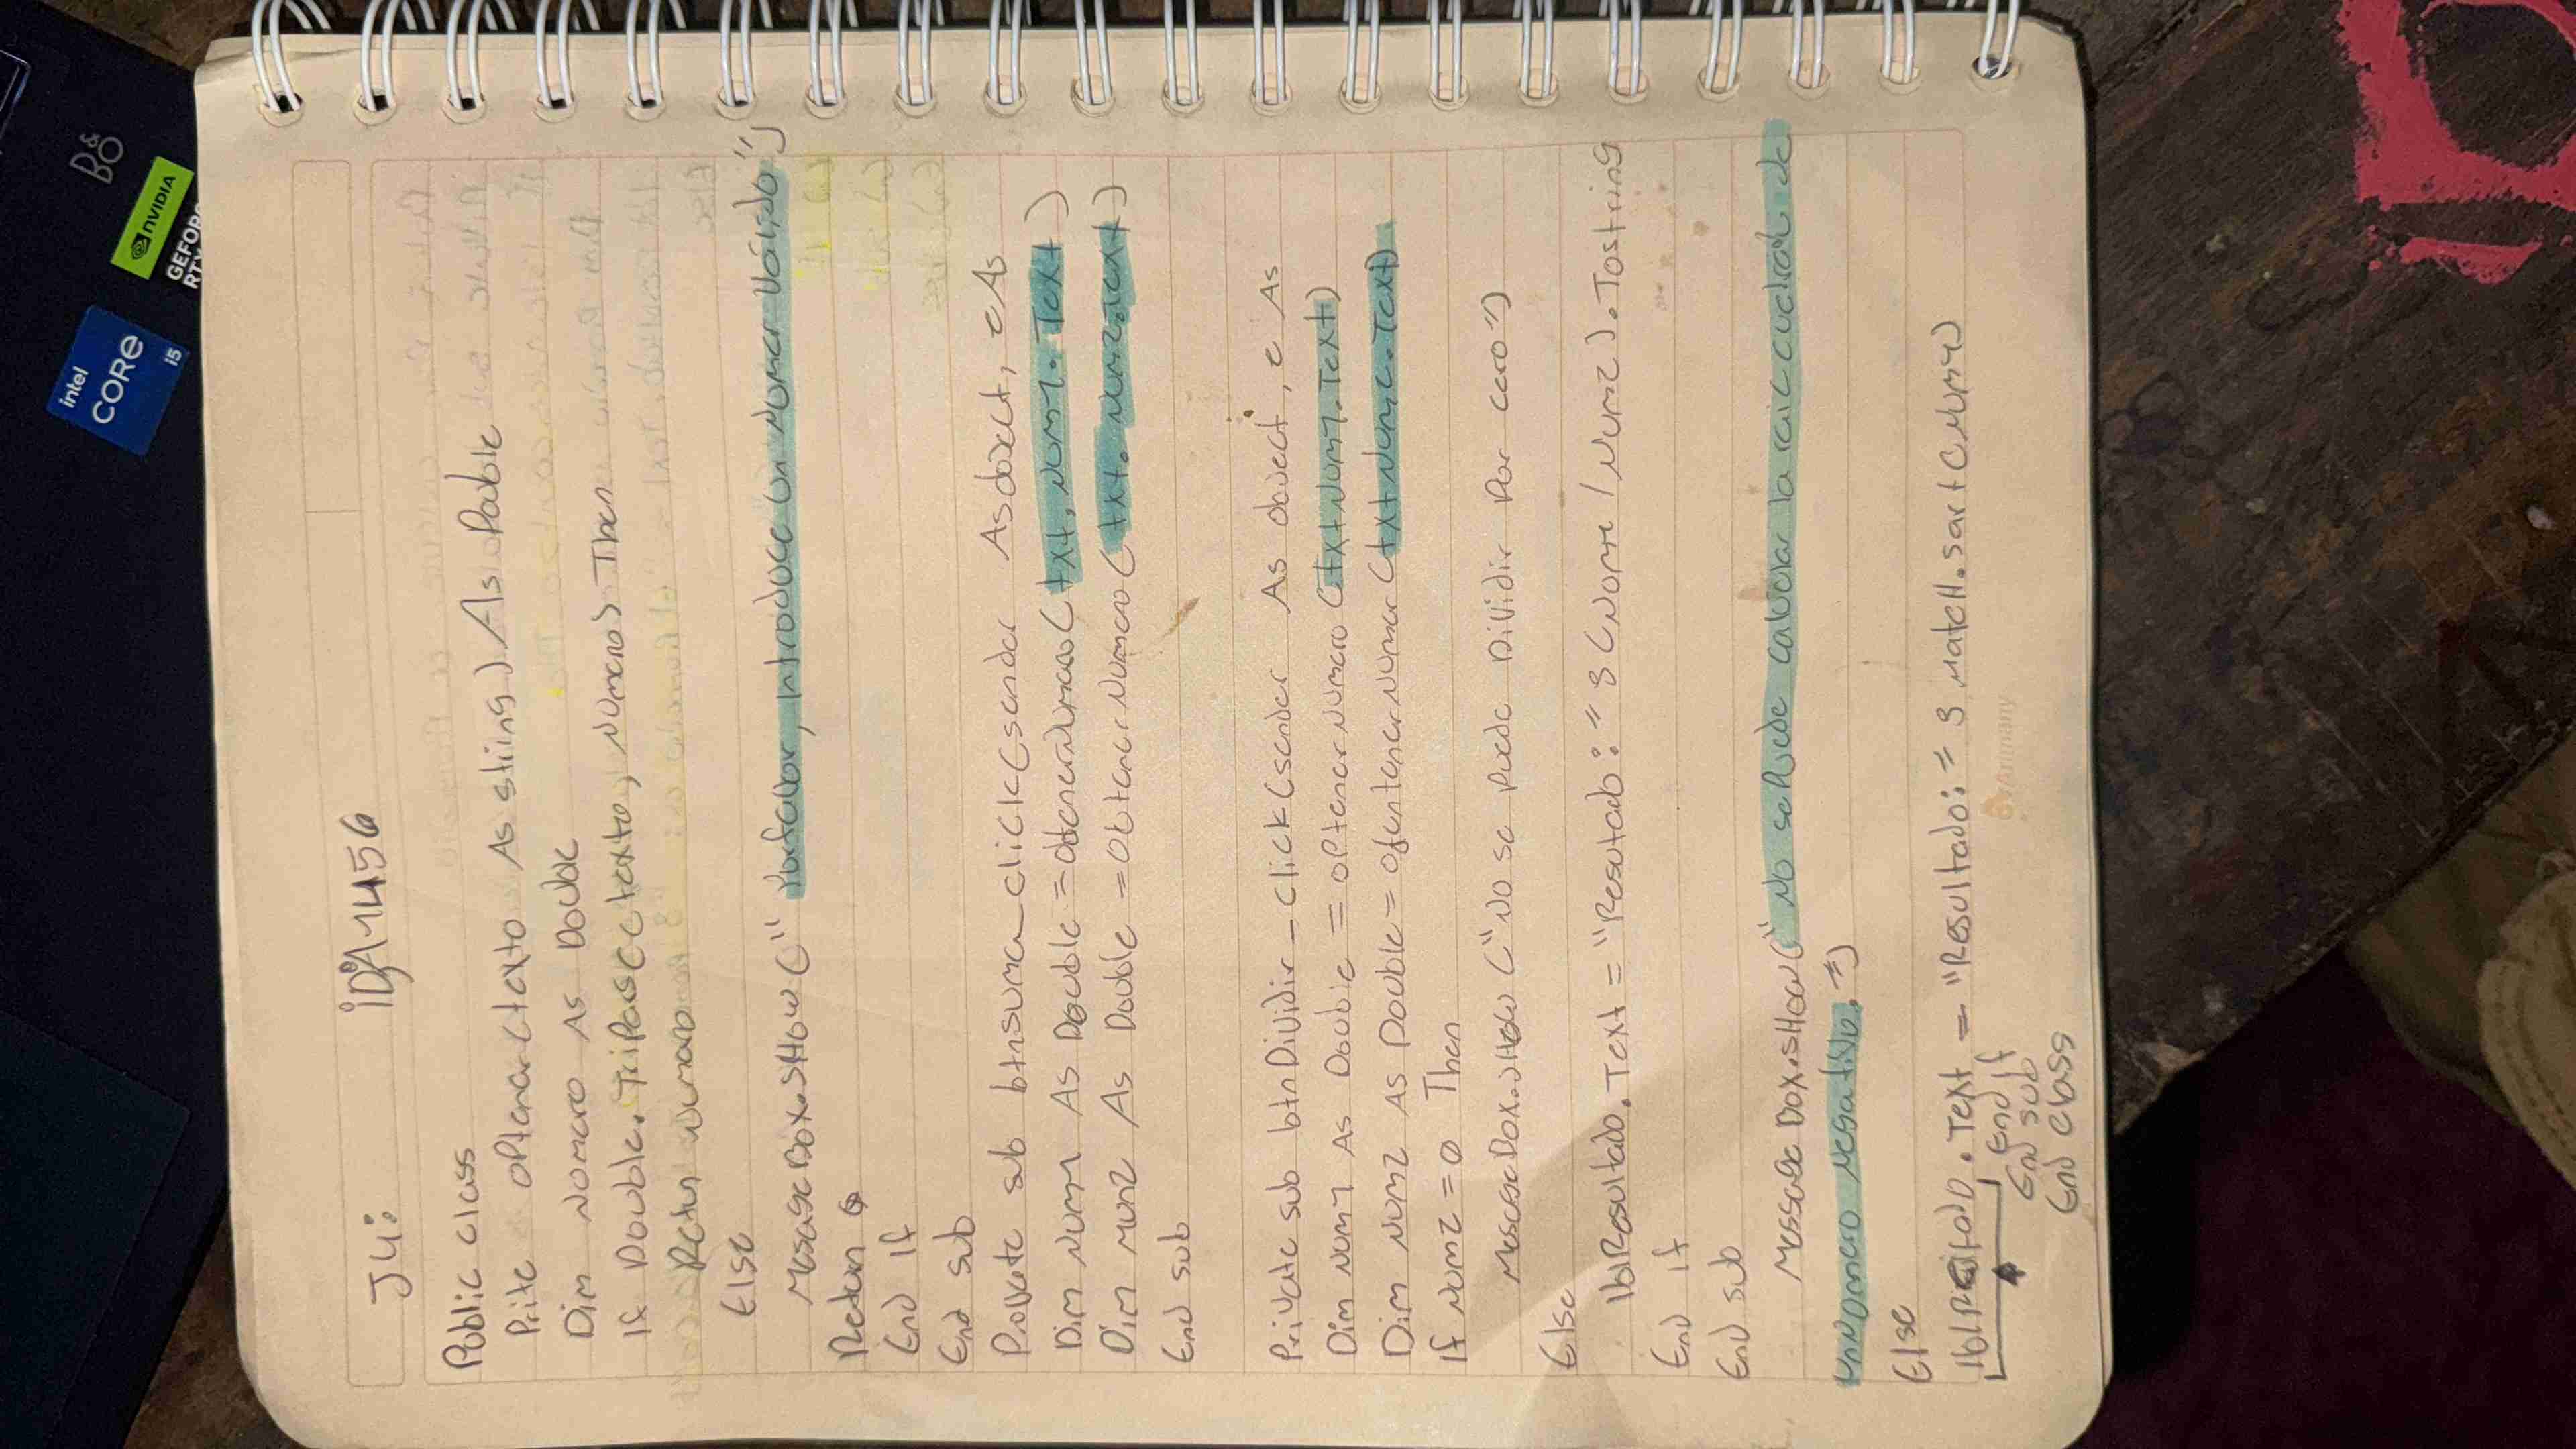 J4:
Public class
Prite optener(texto As stiing) As Pouble
Dim Numero As Double
If Double.TriParse(texto, Numero) Then
Retun Numero
Else
MesageBox.SHow(" Porfavor, introduce un Numer Válido")
Retun 0
End If
End sub
Private sub btnsuma_click(sender As doxct, e As
Dim Num1 As Double = (txt.Num1.Text)
Dim Mun2 As Double = Obtener Numero (txt.Num2.text)
End sub
Private sub btnDividir_click(sender As object, e As
Dim Num1 As Double = optener Numero (txtNum1.Text)
Dim Num2 As Double = Ofentener Numer (txtNum2.Text)
If Num2 = 0 Then
("No se puede Dividir Por cero")
Else
lblResultado.Text = "Resutado: " & (Nom1 / Num2).Tostring
End if
End sub
Message Box.sHow(" No se Puede calcular la raic cudrad de
un Numero Negativo.")
Else
.Text = "Resultado: " & MatcH.sqrt(Num1)
End If
End sub
End class
intel
CORE
i5
NVIDIA
GEFOR
RTX
B&O